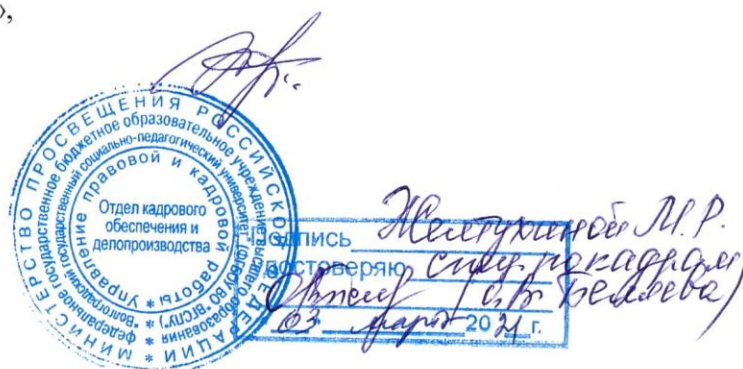 »,
МИНИСТЕРСТВО ПРОСВЕЩЕНИЯ РОССИЙСКОЙ ФЕДЕРАЦИИ *
федеральное государственное бюджетное образовательное учреждение высшего образования *
"Волгоградский государственный социально-педагогический университет" (ФГБОУ ВО "ВГСПУ") *
Управление правовой и кадровой работы *
Отдел кадрового
обеспечения и
делопроизводства
одпись Желтухиной М.Р.
достоверяю спец по кадрам
Беляева)
03 марта 2021 г.